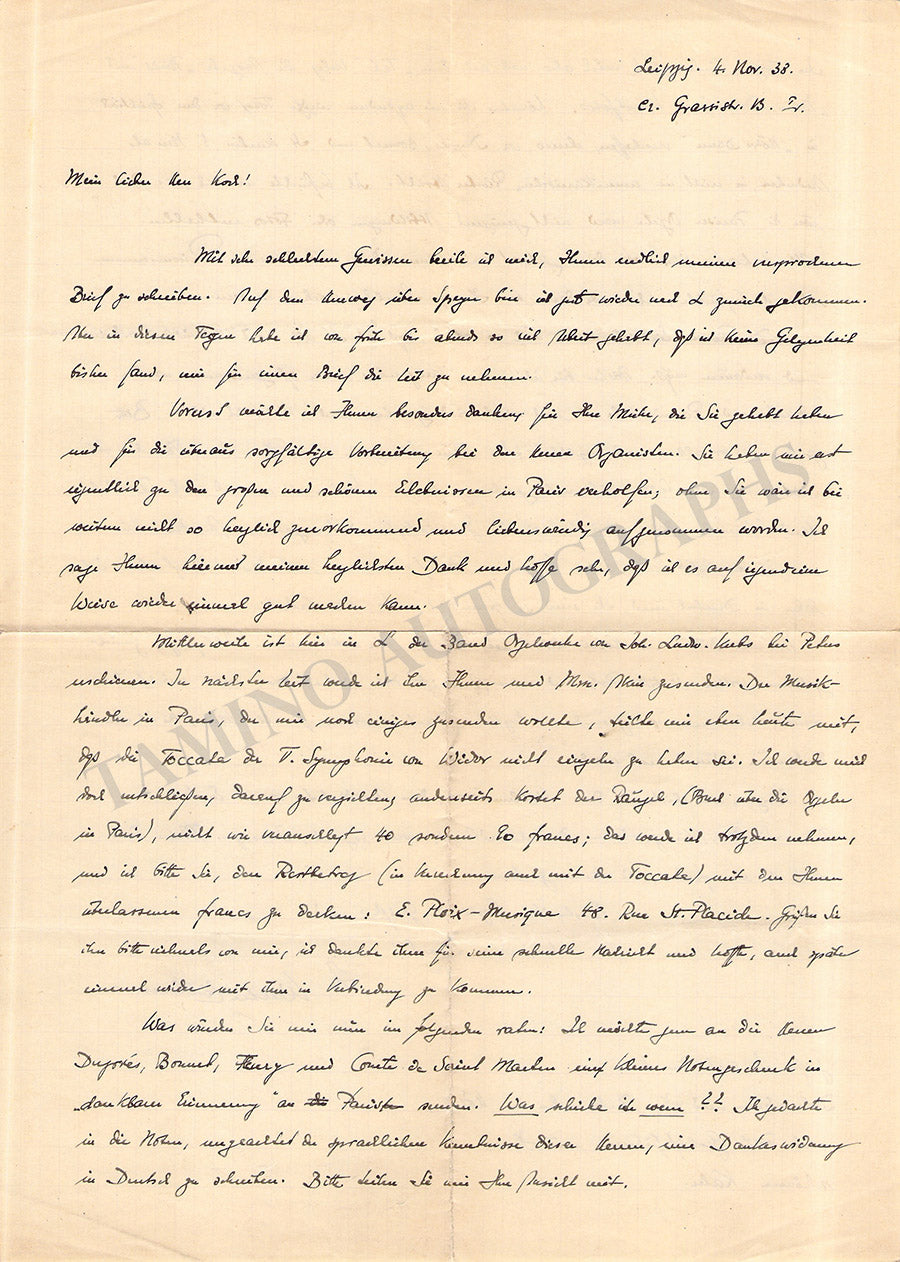 Leipzig. 4. Nov. 38.
C1. Grassistr. B. Tr.
Mein lieber Herr Koch!
Mit sehr schlechtem Gewissen beeile ich mich, Ihnen endlich meinen versprochenen
Brief zu schreiben. Auf dem Umweg über Speyer bin ich gut wieder nach L zurück gekommen.
Aber in diesen Tagen habe ich von früh bis abends so viel Arbeit gehabt, daß ich keine Gelegenheit
bisher fand, mir für einen Brief die Zeit zu nehmen.
Voraus möchte ich Ihnen besonders danken, für Ihre Mühe, die Sie gehabt haben
und für die überaus sorgfältige Vorbereitung bei den Herren Organisten. Sie haben mir erst
eigentlich zu den großen und schönen Erlebnissen in Paris verholfen; ohne Sie wär ich bei
weitem nicht so herzlich zuvorkommend und liebenswürdig aufgenommen worden. Ich
sage Ihnen hiermit meinen herzlichsten Dank und hoffe sehr, daß ich es auf irgendeine
Weise wieder einmal gut machen kann.
Mittlerweile ist hier in L der Band Orgelwerke von Joh. Ludw. Krebs bei Peters
erschienen. In nächster Zeit werde ich ihn Ihnen und Mrs. zusenden. Der Musik-
händler in Paris, der mir noch einiges zusenden wollte, teilte mir eben heute mit,
daß die Toccata der V. Symphonie von Widor nicht einzeln zu haben sei. Ich werde mich
doch entschließen, darauf zu verzichten, anderseits kostet der Raugel, (Buch über die Orgeln
in Paris), nicht wie veranschlagt 40 sondern 80 francs; das werde ich trotzdem nehmen,
und ich bitte Sie, den Restbetrag (in Verrechnung auch mit der Toccata) mit den Ihnen
überlassenen francs zu decken: E. Ploix-Musique 48. Rue St. Placide. Grüßen Sie
ihn bitte vielmals von mir, ich dankte ihm für seine schnelle Nachricht und hoffte, auch später
einmal wieder mit ihm in Verbindung zu kommen.
Was würden Sie mir nun im folgenden raten: Ich möchte gern an die Herren
Duprés, Bonnet, Fleury und Comte de Saint Martin ein kleines Notengeschenk in
"dankbarer Erinnerung" an Paris senden. Was schicke ich wem?? Ich gedachte
in die Noten, ungeachtet der sprachlichen Kenntnisse dieser Herren, eine Dankeswidmung
in Deutsch zu schreiben. Bitte teilen Sie mir Ihre Ansicht mit.
TAMINO AUTOGRAPHS